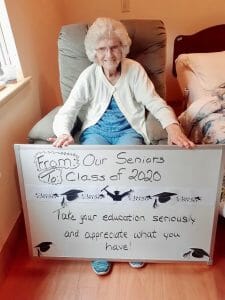 From: Our Seniors
To: Class of 2020
Take your education seriously
and appreciate what you
have!